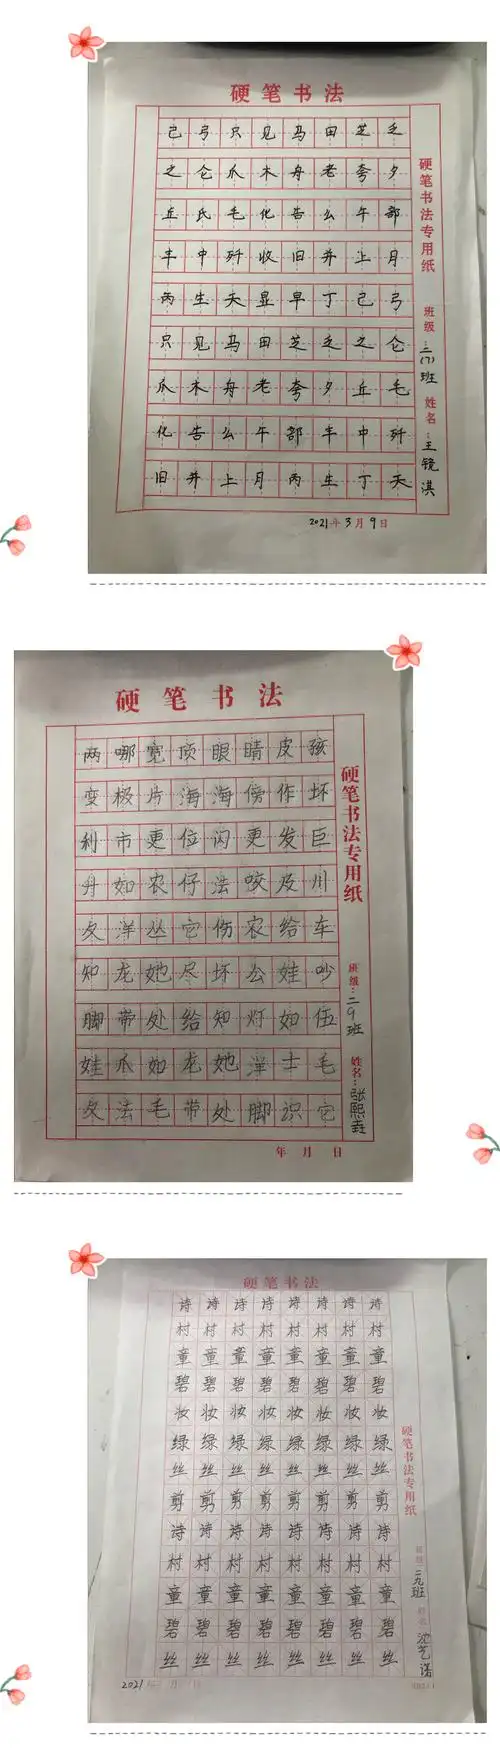 硬笔书法
己弓只见马田芝乏
之仑爪木舟老夸夕
丘氏毛化告么午部
丰中歼收旧并上月
丙生天显早丁己弓
只见马田芝乏之仑
爪木舟老夸夕丘毛
化告么午部丰中歼
旧并上月丙生丁天
硬笔书法专用纸
班级:二(7)班
姓名:王镜淇
2021年3月9日
硬笔书法
两哪宽顶眼睛皮孩
变极片海海傍作坏
利市更位闪更发巨
丹如农仔法咬及川
洋丛它伤农给车
知龙她尽坏公娃吵
脚带处给知灯如伍
娃爪如龙她洋士毛
法毛带处脚识它
硬笔书法专用纸
班级:二9班
姓名:张熙垚
年月日
硬笔书法
诗诗诗诗诗诗诗诗
村村村村村村村村
童童童童童童童童
碧碧碧碧碧碧碧碧
妆妆妆妆妆妆妆妆
绿绿绿绿绿绿绿绿
丝丝丝丝丝丝丝丝
剪剪剪剪剪剪剪剪
诗诗诗诗诗诗诗诗
村村村村村村村村
童童童童童童童童
碧碧碧碧碧碧碧碧
丝丝丝丝丝丝丝丝
硬笔书法专用纸
班级:二九班
姓名:沈艺诺
2021年月日